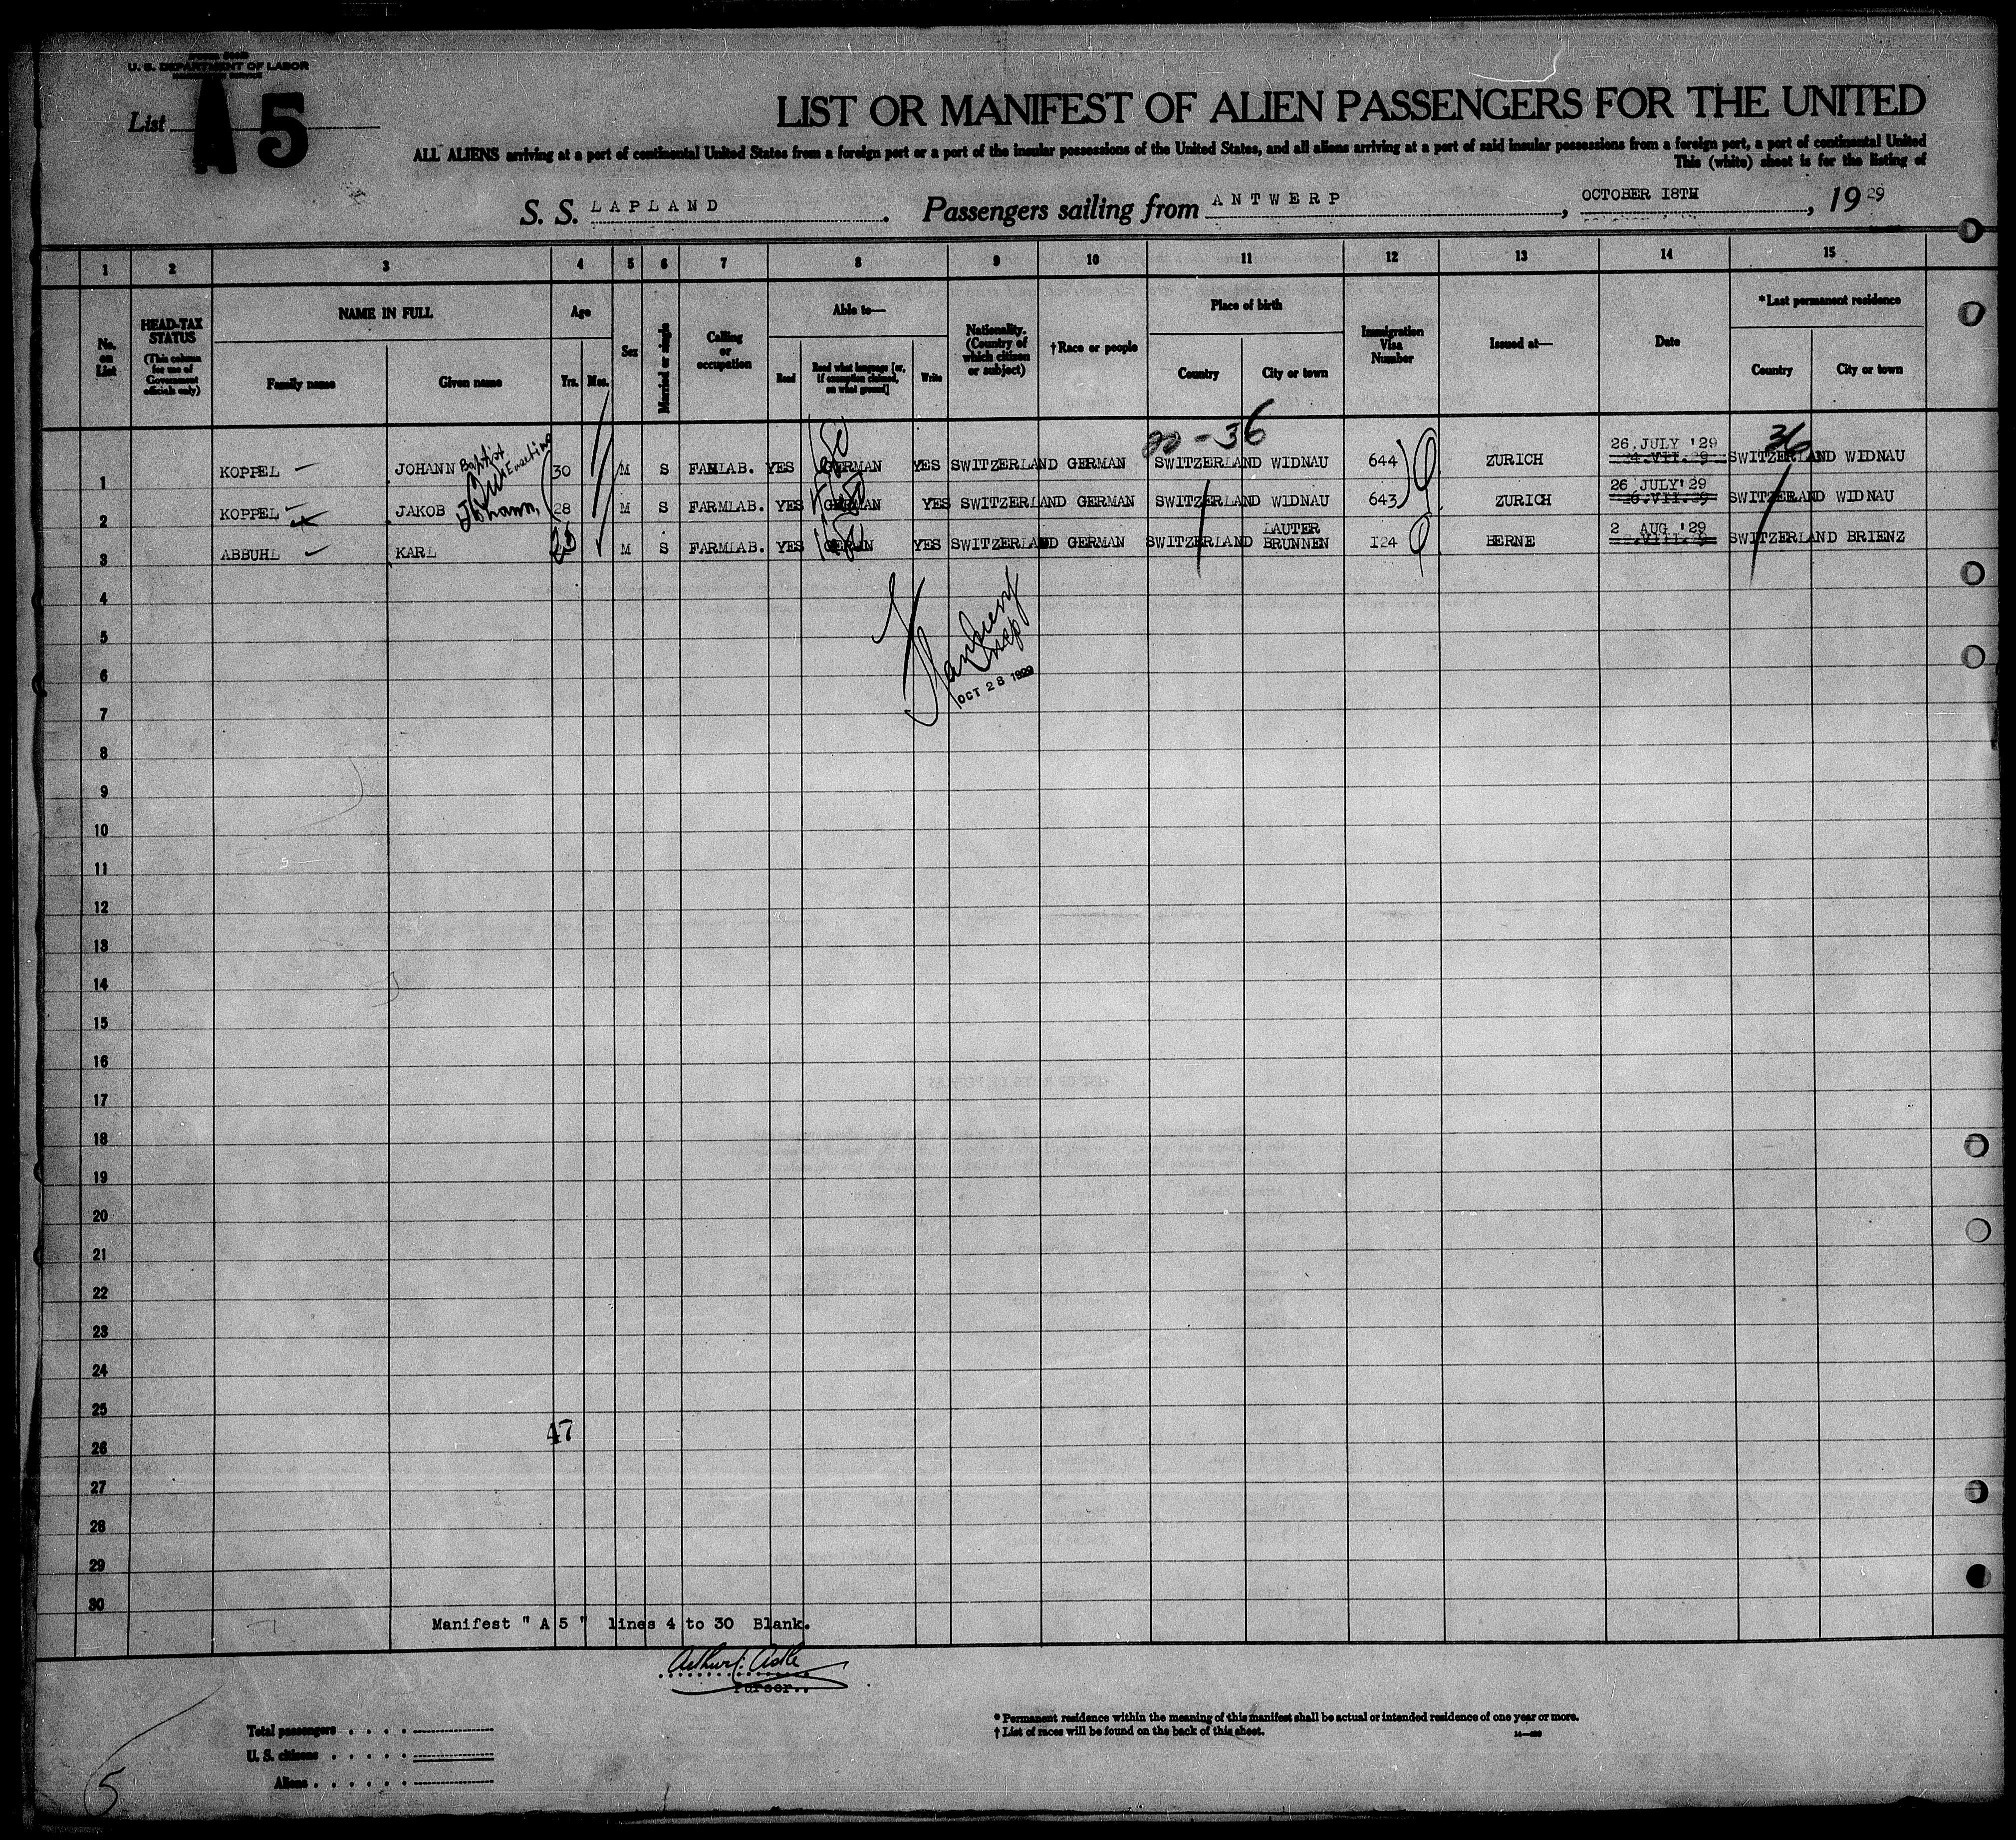 U. S. DEPARTMENT OF LABOR
List A 5
LIST OR MANIFEST OF ALIEN PASSENGERS FOR THE UNITED
ALL ALIENS arriving at a port of continental United States from a foreign port or a port of the insular possessions of the United States, and all aliens arriving at a port of said insular possessions from a foreign port, a port of continental United
This (white) sheet is for the listing of
S. S. LAPLAND. Passengers sailing from ANTWERP, OCTOBER 18TH, 1929
1 2 3 4 5 6 7 8 9 10 11 12 13 14 15
No. on List
HEAD-TAX STATUS (This column for use of Government officials only)
NAME IN FULL
Family name Given name
Age
Yrs. Mos.
Sex
Married or single
Calling or occupation
Able to—
Read Read what language [or, if exemption claimed, on what ground] Write
Nationality. (Country of which citizen or subject)
†Race or people
Place of birth
Country City or town
Immigration Visa Number
Issued at—
Date
*Last permanent residence
Country City or town
36 36
1 KOPPEL JOHANN Baptist 30 M S FARMLAB. YES GERMAN YES SWITZERLAND GERMAN SWITZERLAND WIDNAU 644 ZURICH 26 JULY '29 SWITZERLAND WIDNAU
2 KOPPEL JAKOB Johann 28 M S FARMLAB. YES GERMAN YES SWITZERLAND GERMAN SWITZERLAND WIDNAU 643 ZURICH 26 JULY'29 SWITZERLAND WIDNAU
3 ABBUHL KARL M S FARMLAB. YES GERMAN YES SWITZERLAND GERMAN SWITZERLAND LAUTER BRUNNEN I24 BERNE 2 AUG '29 SWITZERLAND BRIENZ
4
5
6
OCT 28 1929
7
8
9
10
11
12
13
14
15
16
17
18
19
20
21
22
23
24
25
47
26
27
28
29
30
Manifest " A 5 " lines 4 to 30 Blank.
Purser..
Total passengers
U. S. citizens
Aliens
* Permanent residence within the meaning of this manifest shall be actual or intended residence of one year or more.
† List of races will be found on the back of this sheet.
5